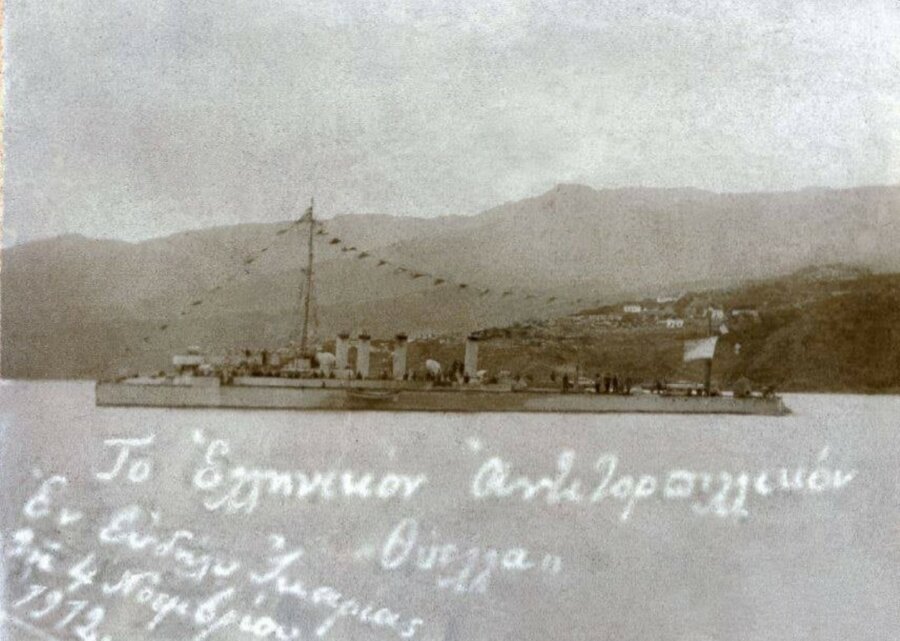 Το Ἑλληνικὸν Ἀντιτορπιλλικόν
"Θύελλα"
Ἐν Εὐδήλῳ Ἰκαρίας
τῇ 4 Νοεμβρίου
1912.